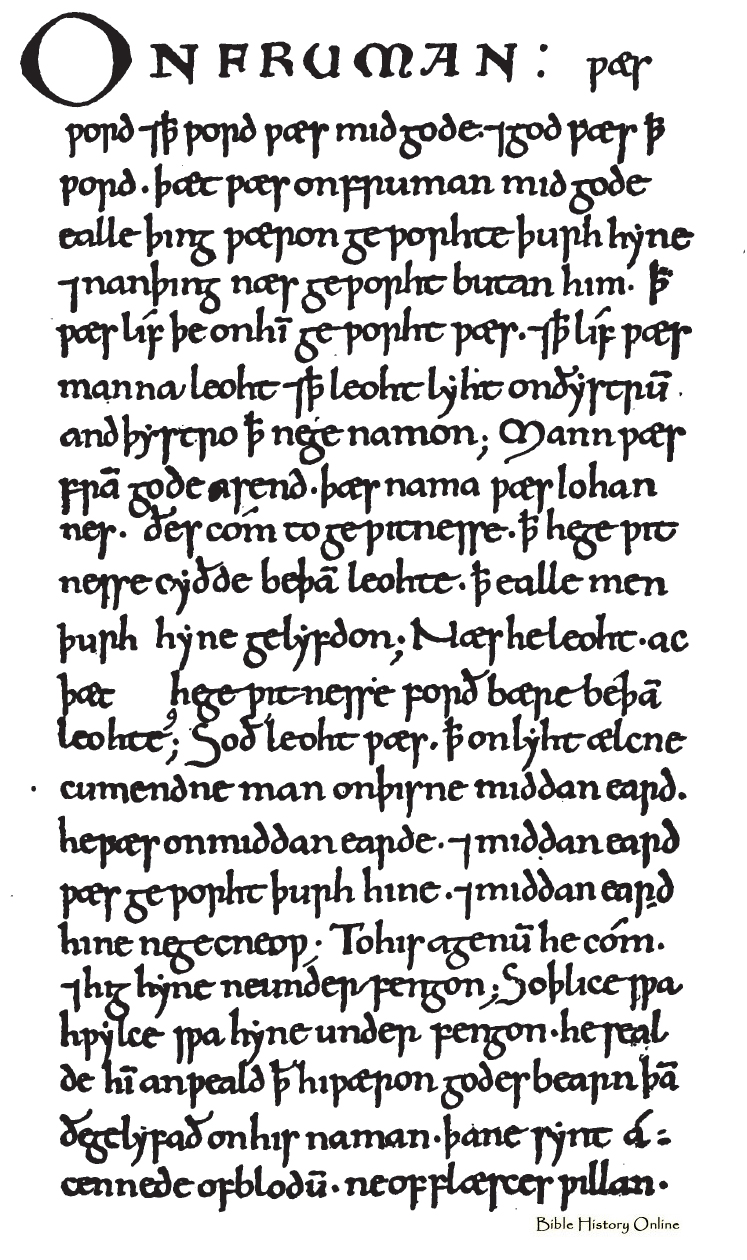 ON FRUMAN : ƿæs
ƿord ⁊ ꝥ ƿord ƿæs mid gode · ⁊ god ƿæs ꝥ
ƿord · þæt ƿæs on fruman mid gode
ealle þing ƿæron geƿorhte þurh hẏne
⁊ nan þing næs geƿorht butan him · ꝥ
ƿæs líf þe on hī geƿorht ƿæs · ⁊ ꝥ líf ƿæs
manna leoht ⁊ ꝥ leoht lẏht on ðẏstrū ·
and þẏstro ꝥ ne genamon ; Mann ƿæs
frā gode asend · þæs nama ƿæs Iohan
nes · ðes cóm to geƿitnesse · ꝥ he geƿit
nesse cẏðde be þā leohte · ꝥ ealle men
þurh hẏne gelẏfdon ; Næs he leoht · ac
þæt he geƿitnesse forð bære be þā
leohte ; Soð leoht ƿæs · ꝥ onlẏht ælcne
cumendne man on þisne middan eard ·
he ƿæs on middan earde · ⁊ middan eard
ƿæs geƿorht þurh hine · ⁊ middan eard
hine ne gecneoƿ ; To his agenū he cóm ·
⁊ hig hẏne ne underfengon ; Soþlice sƿa
hƿẏlce sƿa hẏne underfengon · he seal
de hī anƿeald ꝥ hi ƿæron godes bearn þā
ðe gelẏfað on his naman · þa ne sẏnt á :
cennede of blodū · ne of flæsces ƿillan ·
Bible History Online